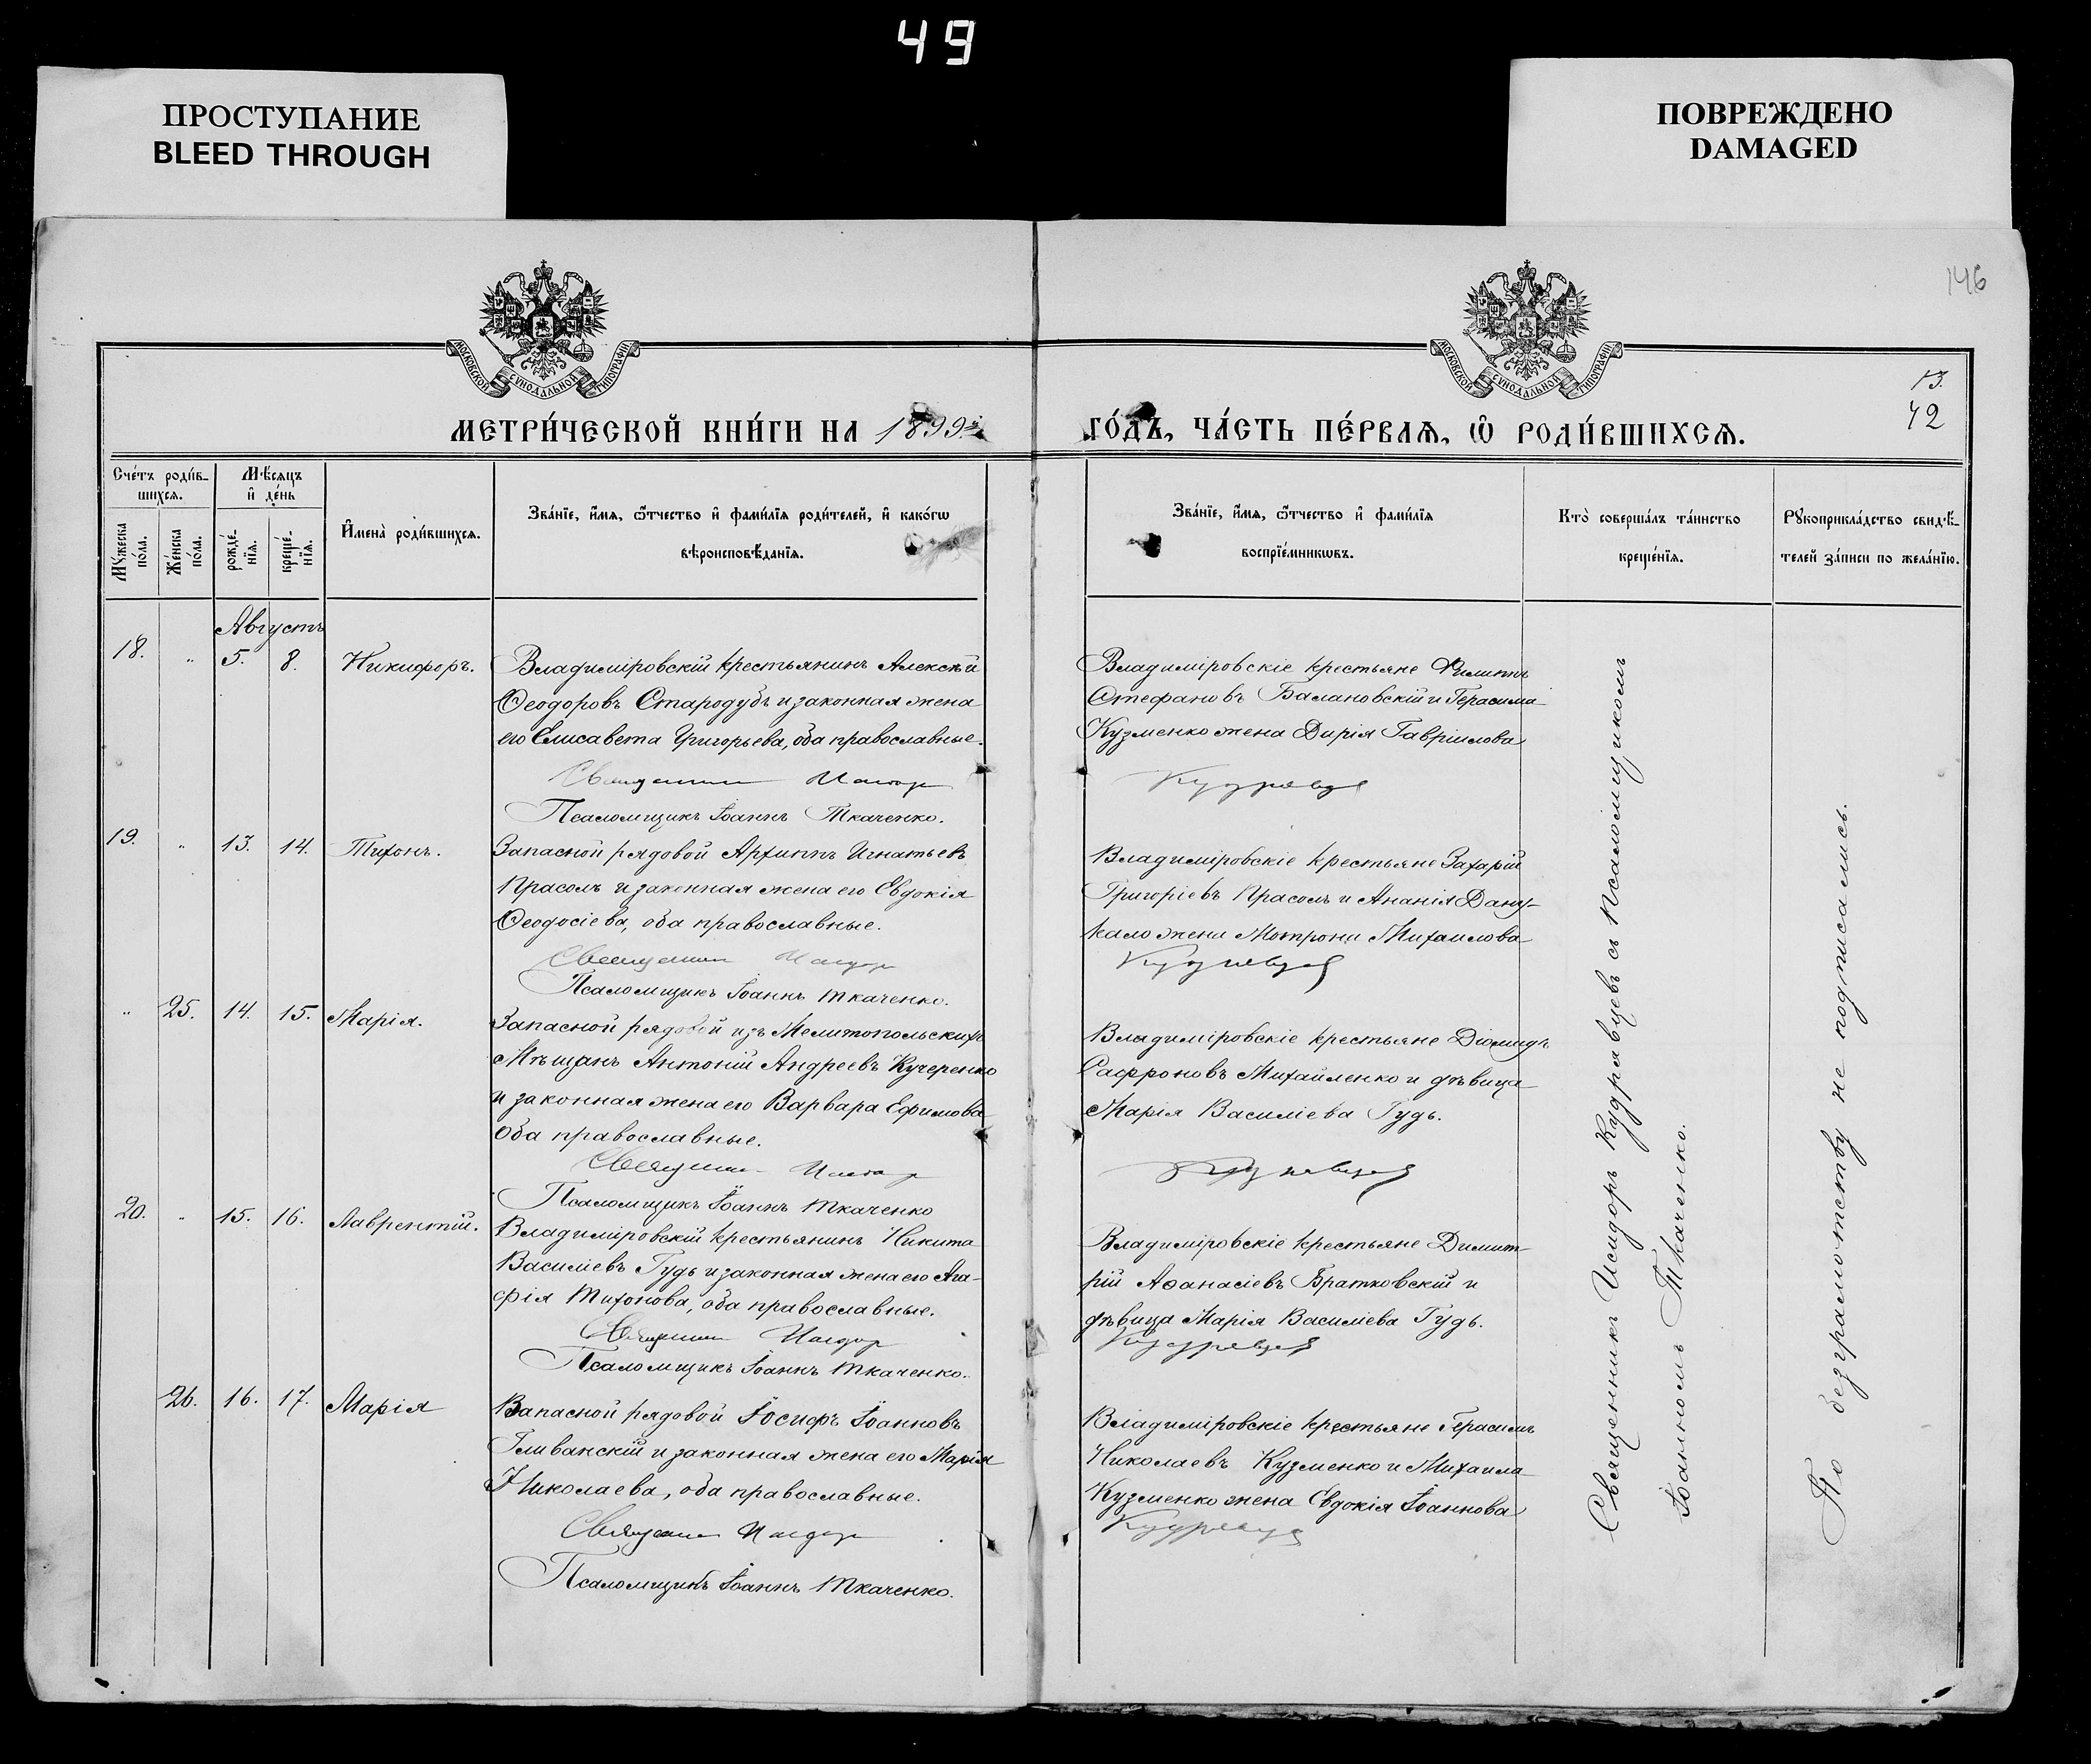 49
ПРОСТУПАНИЕ
BLEED THROUGH
ПОВРЕЖДЕНО
DAMAGED
146
МОСКОВСКОЙ СУНОДАЛЬНОЙ ТИПОГРАФІИ
МОСКОВСКОЙ СУНОДАЛЬНОЙ ТИПОГРАФІИ
13.
42
МЕТРИ́ЧЕСКОЙ КНИ́ГИ НА 1899й
ГО́ДЪ, ЧА́СТЬ ПЕ́РВАѦ, Ѡ РОДИ́ВШИХСѦ.
Сче́тъ роди́в-
шихсѧ.
Мѣсѧцъ
и де́нь
Мꙋ́жеска
по́ла.
Же́нска
по́ла.
рожде́-
нїѧ.
креще́-
нїѧ.
Имена̀ роди́вшихсѧ.
Зва́нїе, и́мѧ, ѻ́тчество и фами́лїѧ роди́телей, и како́гѡ
вѣроисповѣ́данїѧ.
Зва́нїе, и́мѧ, ѻ́тчество и фами́лїѧ
воспрїе́мникѡвъ.
Кто̀ соверша́лъ та́инство
креще́нїѧ.
Рꙋкоприкла́дство свидѣ́-
телей за́писи по жела́нїю.
Августъ
18. " 5. 8. Никифоръ.
Владиміровскій крестьянинъ Алексѣй
Ѳеодоровъ Стародубъ и законная жена
его Елисавета Григорьева, оба православные.
Священникъ Исидоръ
Псаломщикъ Іоаннъ Ткаченко.
Владиміровскіе крестьяне Филиппъ
Стефановъ Балановскій и Герасима
Кузменко жена Дарія Гавріилова
Кудрявцев
19. " 13. 14. Тихонъ.
Запасной рядовой Архиппъ Игнатьевъ
Прасолъ и законная жена его Евдокія
Ѳеодосіева, оба православные.
Священникъ Исидоръ
Псаломщикъ Іоаннъ Ткаченко.
Владиміровскіе крестьяне Захарій
Григоріевъ Прасолъ и Ананія Дану-
кало жена Мотрона Михаилова
Кудрявцев
" 25. 14. 15. Марія.
Запасной рядовой изъ Мелитопольскихъ
Мѣщанъ Антоній Андреевъ Кучеренко
и законная жена его Варвара Ефимова
оба православные.
Священникъ Исидоръ
Псаломщикъ Іоаннъ Ткаченко
Владиміровскіе крестьяне Діомидъ
Сафроновъ Михайленко и дѣвица
Марія Василіева Гудь.
Кудрявцев
20. " 15. 16. Лаврентій.
Владиміровскій крестьянинъ Никита
Василіевъ Гудь и законная жена его Ага-
фія Тихонова, оба православные.
Священникъ Исидоръ
Псаломщикъ Іоаннъ Ткаченко.
Владиміровскіе крестьяне Димит-
рій Аѳанасіевъ Братковскій и
дѣвица Марія Василіева Гудь.
Кудрявцев
26. 16. 17. Марія
Запасной рядовой Іосифъ Іоанновъ
Гливанскій и законная жена его Марія
Николаева, оба православные.
Священникъ Исидоръ
Псаломщикъ Іоаннъ Ткаченко.
Владиміровскіе крестьяне Герасимъ
Николаевъ Кузменко и Михаила
Кузменко жена Евдокія Іоаннова
Кудрявцев
Священникъ Исидоръ Кудрявцевъ съ Псаломщикомъ
Іоанномъ Ткаченко.
По безграмотству не подписались.